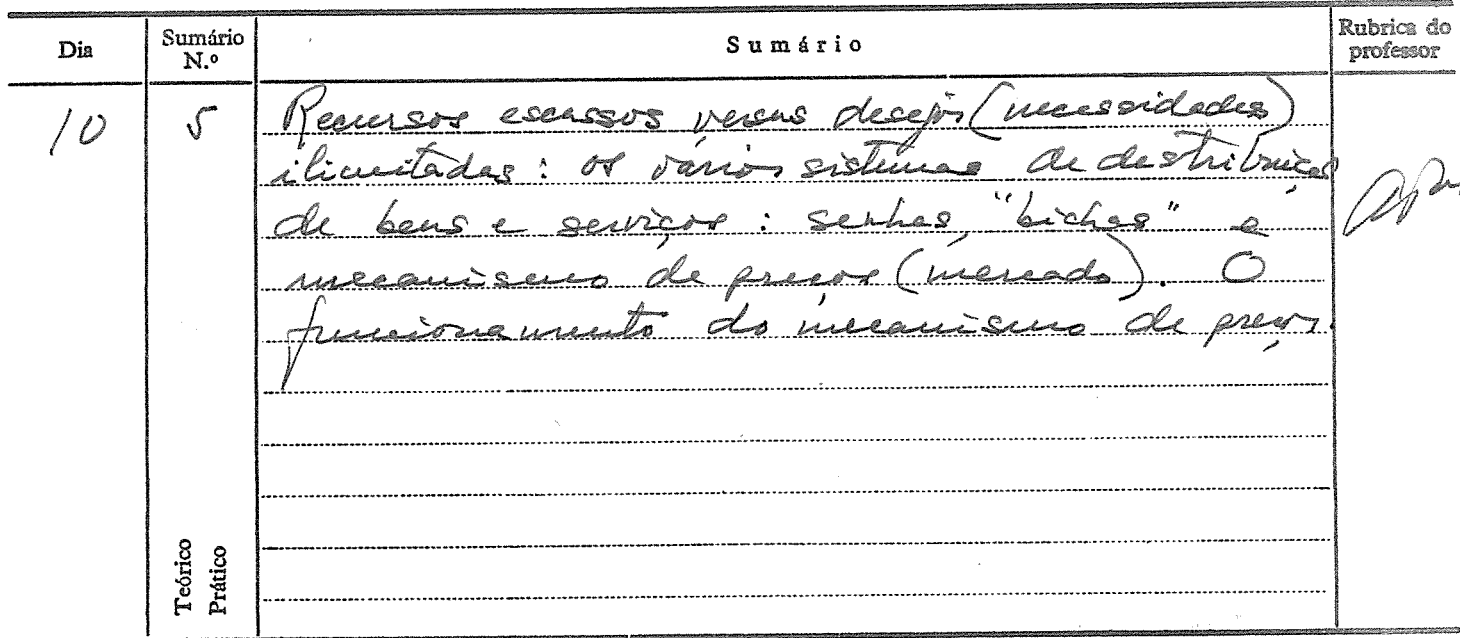 Dia Sumário N.º Sumário Rubrica do professor
10 5 Recursos escassos versus desejos (necessidades)
ilimitadas: os vários sistemas de destribuição
de bens e serviços: senhas, "bichas" e
mecanismo de preços (mercado). O
funcionamento do mecanismo de preços.
Teórico
Prático